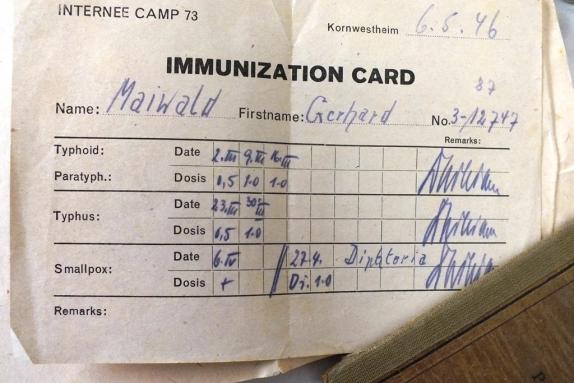 INTERNEE CAMP 73
Kornwestheim 6.5.46
IMMUNIZATION CARD
87
Name: Maiwald Firstname: Gerhard No. 3-/12747
Remarks:
Typhoid: Date 2.III 9.III 16.III
Paratyph.: Dosis 0,5 1.0 1.0
Typhus: Date 23.III 30.III
Dosis 0,5 1.0
Smallpox: Date 6.IV 27.4. Diphteria
Dosis + Di. 1.0
Remarks: